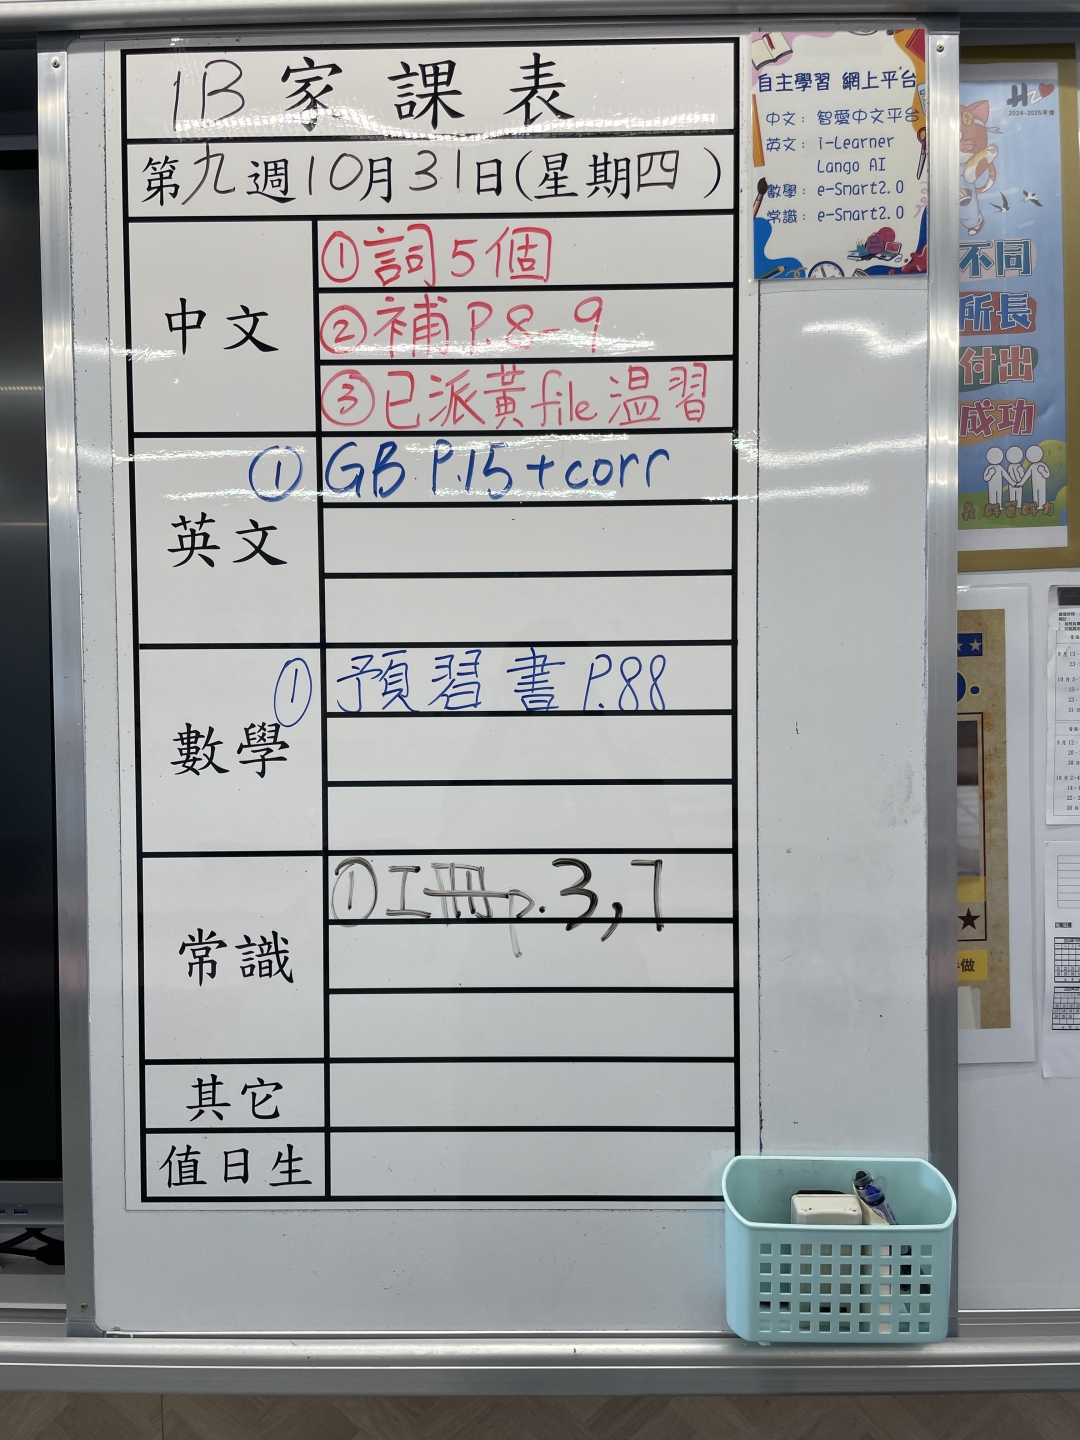 1B家課表
第九週10月31日(星期四)
中文
①詞5個
②補P.8-9
③已派黃file溫習
英文
①GB P.15+corr
數學
①預習書P.88
常識
①工冊p.3,7
其它
值日生
自主學習 網上平台
中文：智愛中文平台
英文：i-Learner
Lango AI
數學：e-Smart2.0
常識：e-Smart2.0
2024-2025年度
不同
所長
付出
成功